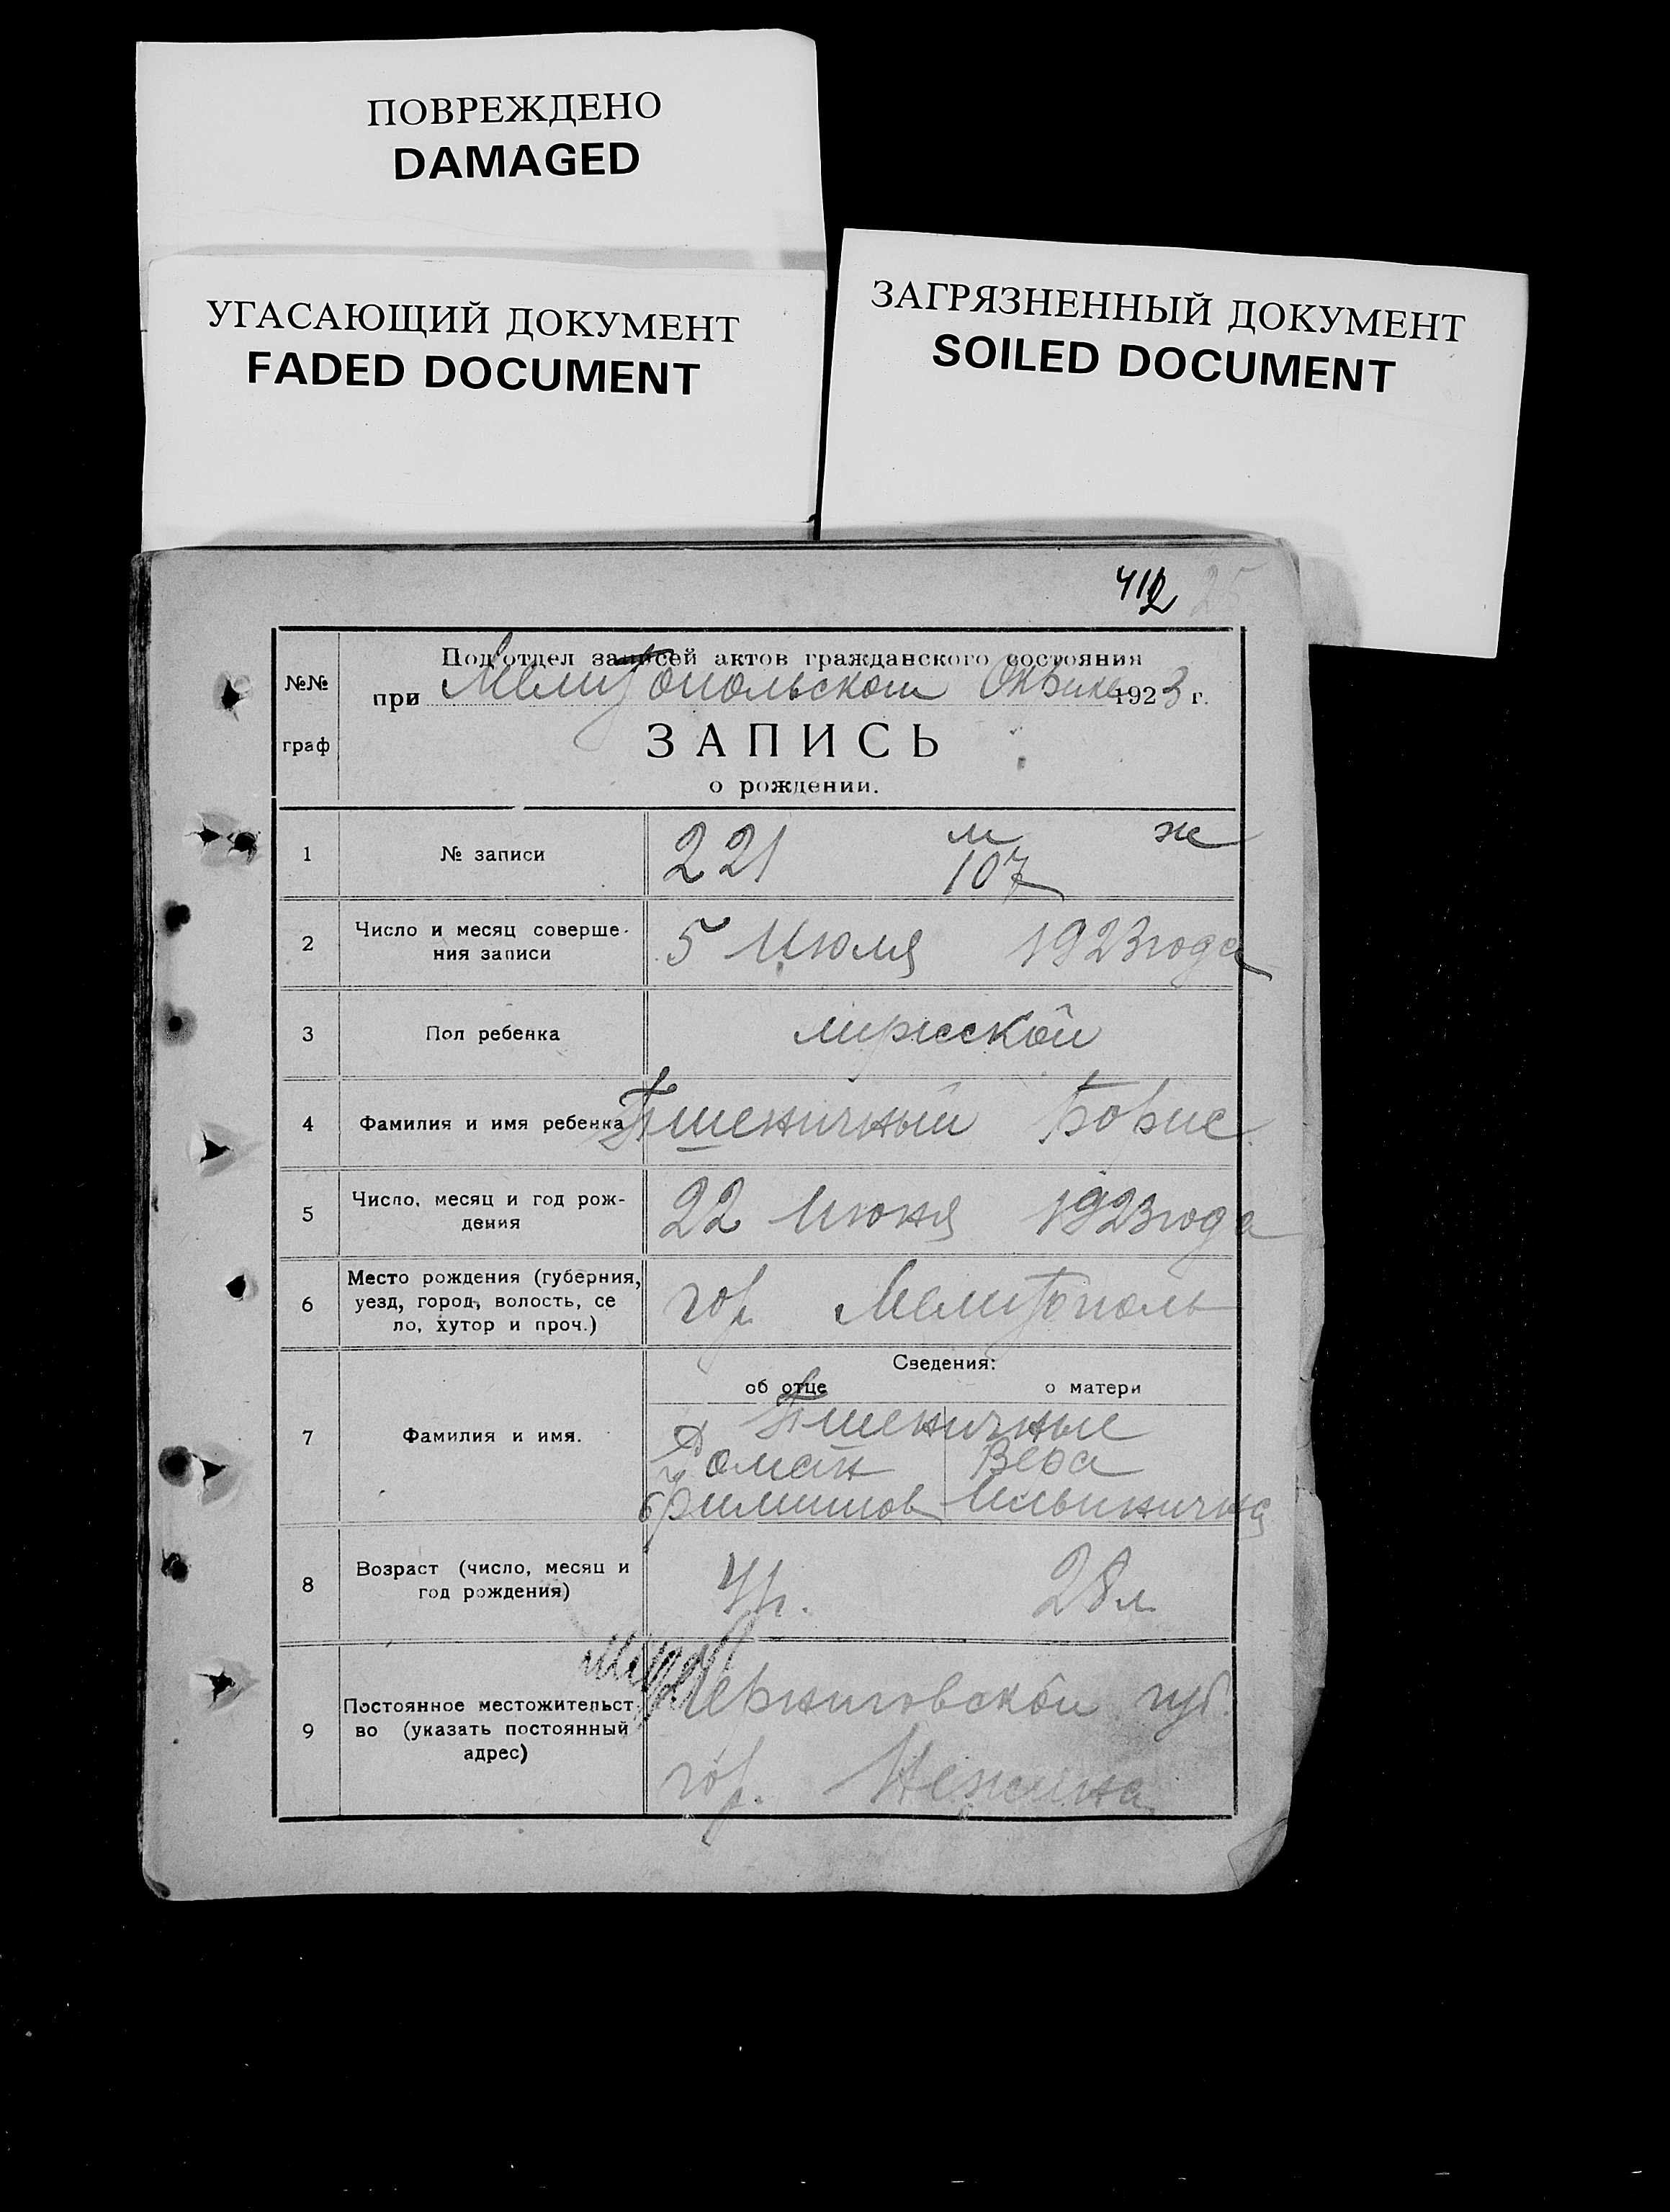 ПОВРЕЖДЕНО
DAMAGED
УГАСАЮЩИЙ ДОКУМЕНТ
FADED DOCUMENT
ЗАГРЯЗНЕННЫЙ ДОКУМЕНТ
SOILED DOCUMENT
412 25
№№ граф
Под'отдел записей актов гражданского состояния
при Мелитопольском 1923 г.
ЗАПИСЬ
о рождении.
1 № записи 221 м ж
107
2 Число и месяц соверше-
ния записи 5 Июля 1923 года
3 Пол ребенка мужской
4 Фамилия и имя ребенка Пшеничный Борис
5 Число, месяц и год рож-
дения 22 Июня 1923 года
6 Место рождения (губерния,
уезд, город, волость, се
ло, хутор и проч.) гор. Мелитополь
Сведения:
об отце о матери
7 Фамилия и имя. Пшеничные
Роман Вера
Ильинична
8 Возраст (число, месяц и
год рождения) 41 г. 28 л
9 Постоянное местожительст
во (указать постоянный
адрес) Черниговской губ.
гор. Нежина